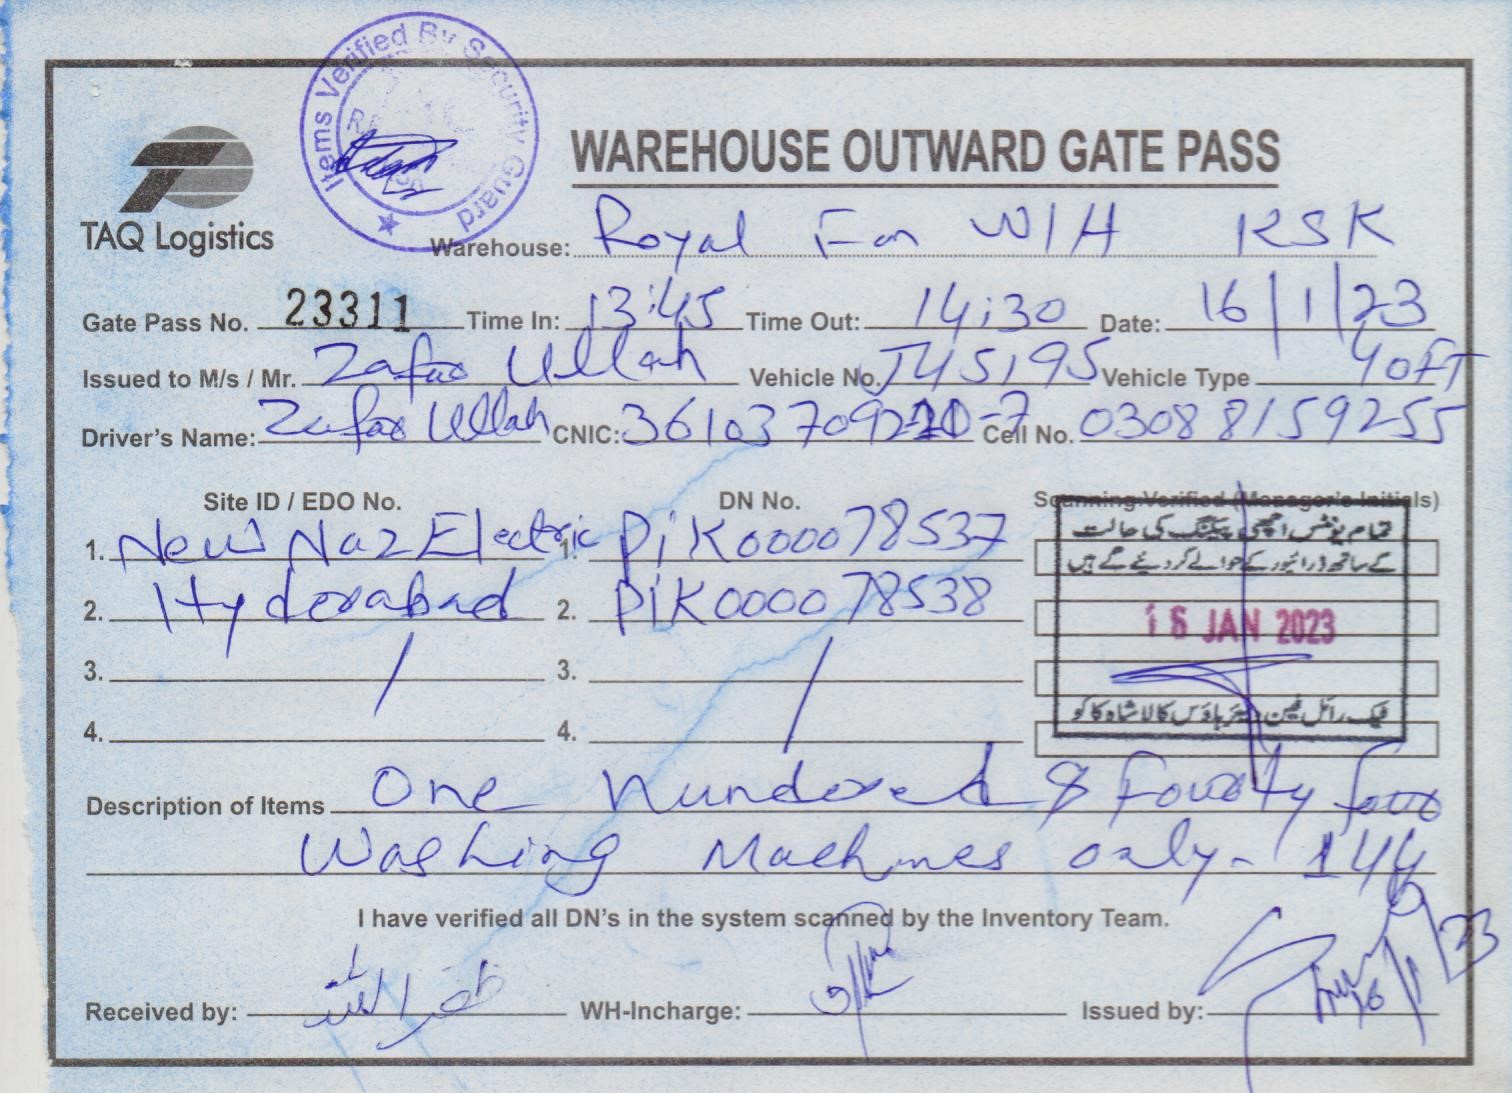 Items Verified By Security Guard
WAREHOUSE OUTWARD GATE PASS
TAQ Logistics
Warehouse: Royal Fan W/H KSK
Gate Pass No. 23311 Time In: 13:45 Time Out: 14:30 Date: 16/1/23
Issued to M/s / Mr. Zafar Ullah Vehicle No. J45195 Vehicle Type 40FT
Driver's Name: Zafar Ullah CNIC: Cell No. 03088159255
Site ID / EDO No. DN No. Scanning Verified (Manager's Initials)
1. New Naz Electric 1. PiK000078537
تمام یونٹس اچھی پیکنگ کی حالت
کے ساتھ ڈرائیور کے حوالے کردیئے گئے ہیں
2. Hyderabad 2. PiK000078538
16 JAN 2023
3. / 3. /
ٹیک رائل فین ویئر ہاؤس کالا شاہ کاکو
4. 4.
Description of Items One Hundered & Fourty four
Washing Machines only- 144
I have verified all DN's in the system scanned by the Inventory Team.
Received by: ظفر اللہ WH-Incharge: Issued by: 16/1/23